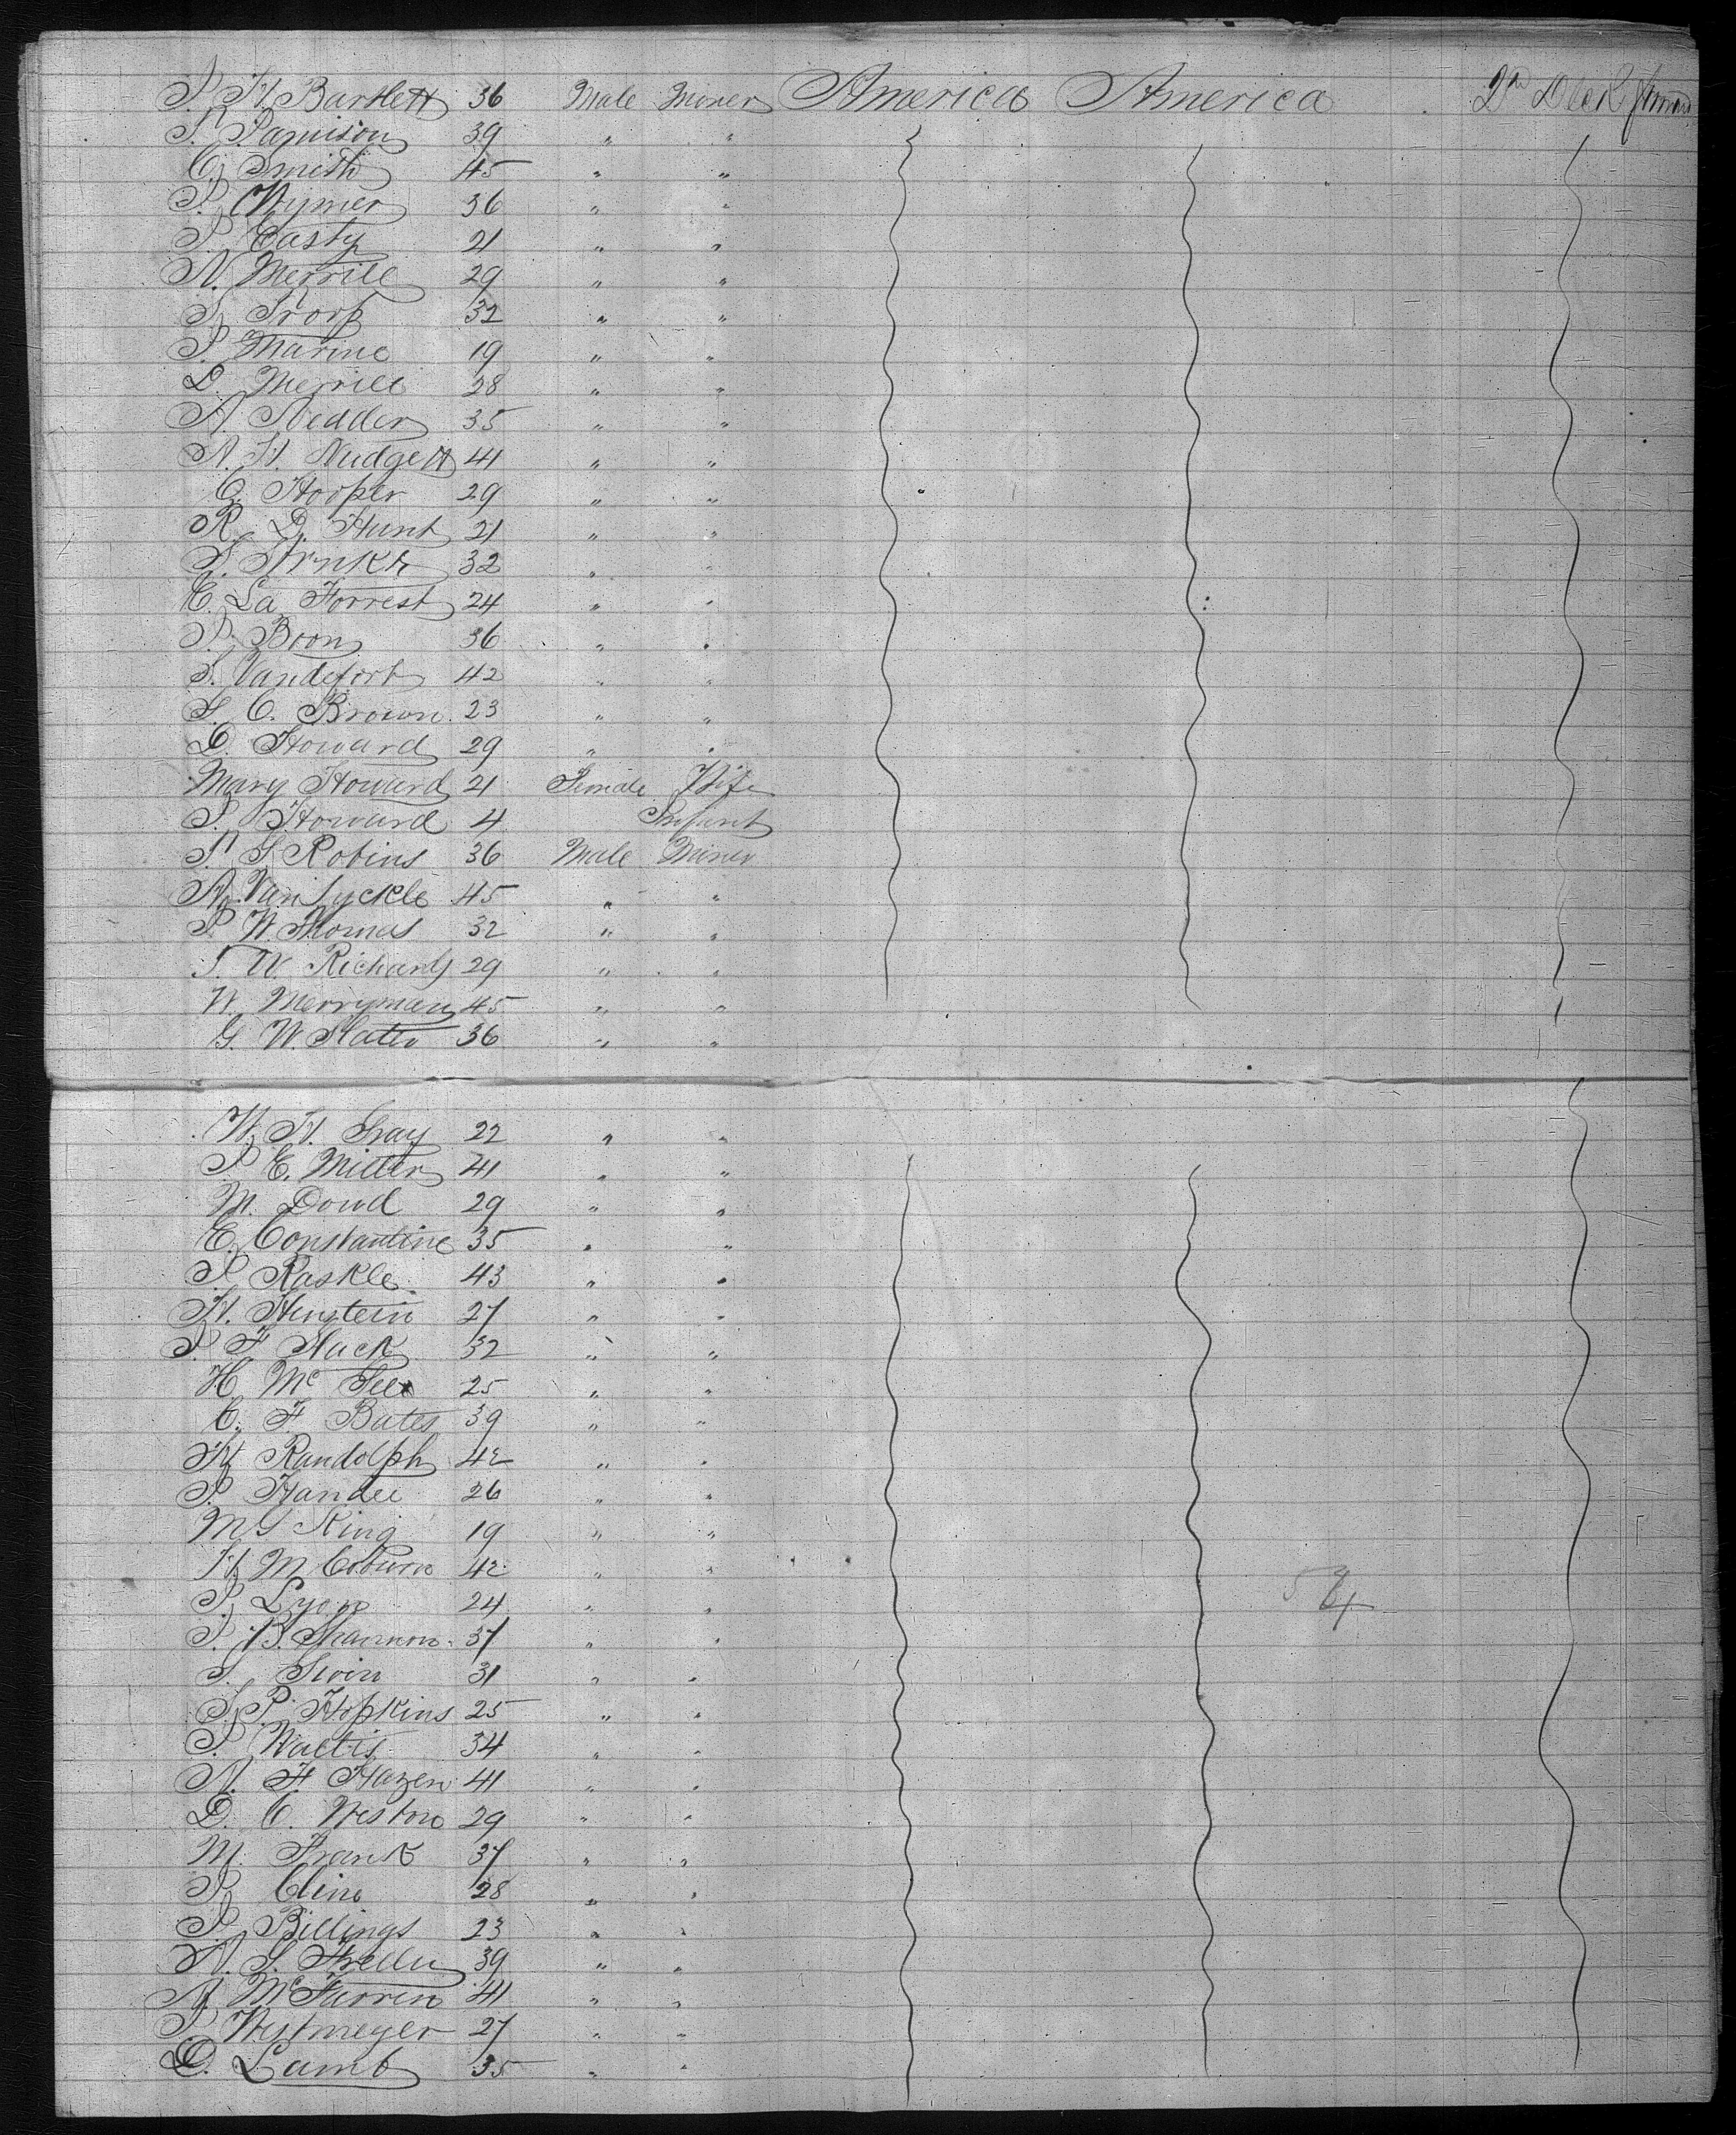 J. H. Bartlett 36 Male Miner America America 2nd Deck
S. Jamison 39 " "
C. Smith 45 " "
J. Wymer 36 " "
J. Casty 21 " "
N. Merrill 29 " "
J. Troop 32 " "
J. Marine 19 " "
D. Merrill 28 " "
A. Nedder 35 " "
A. H. Nudgett 41 " "
C. Hooper 29 " "
R. D. Hunt 21 " "
S. 32 " "
E. La Forrest 24 " "
J. Boon 36 " "
S. Vandefort 42 " "
S. C. Brown 23 " "
D. Howard 29 " "
Mary Howard 21 Female Wife
J. Howard 4 Infant
S. S. Robins 36 Male Miner
A. Van Syckle 45 " "
J. W. Thomas 32 " "
T. W. Richards 29 " "
W. Merryman 45 " "
G. W. Slater 36 " "
W. H. Gray 22 " "
J. E. Miller 41 " "
M. Dowd 29 " "
E. Constantine 35 " "
J. Raskle 43 " "
H. Henstein 27 " "
J. F. Slack 32 " "
H. Mc 25 " "
C. F. Bates 39 " "
H. Randolph 42 " "
J. Handee 26 " "
M. G. King 19 " "
H. M. Coburn 42 " "
J. Lyon 24 " "
J. B. Shannon 37 " "
S. 31 " "
S. P. Hopkins 25 " "
J. 34 " "
N. F. Hazen 41 " "
D. C. Weston 29 " "
M. Frank 37 " "
J. Cline 28 " "
J. Billings 23 " "
N. S. 39 " "
A. McFarren 41 " "
J. Westmeyer 27 " "
D. Lamb 35 " "